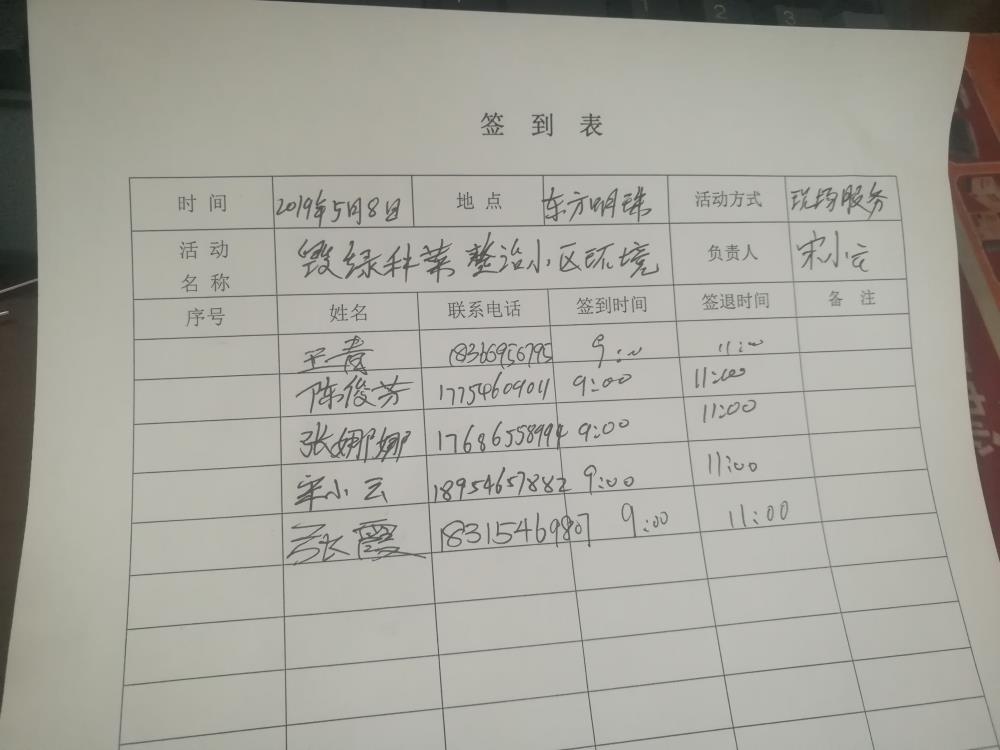 签到表
时间 2019年5月8日 地点 东方明珠 活动方式 现场服务
活动名称 毁绿种菜整治小区环境 负责人 宋小云
序号 姓名 联系电话 签到时间 签退时间 备注
王青 18366956795 9:00 11:00
陈俊芳 17754609011 9:00 11:00
张娜娜 17686558994 9:00 11:00
宋小云 18954657882 9:00 11:00
张霞 18315469807 9:00 11:00